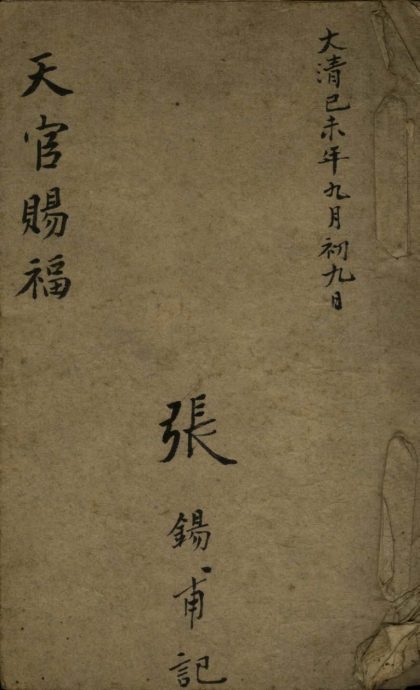 大清己未年九月初九日
張錫甫記
天官賜福